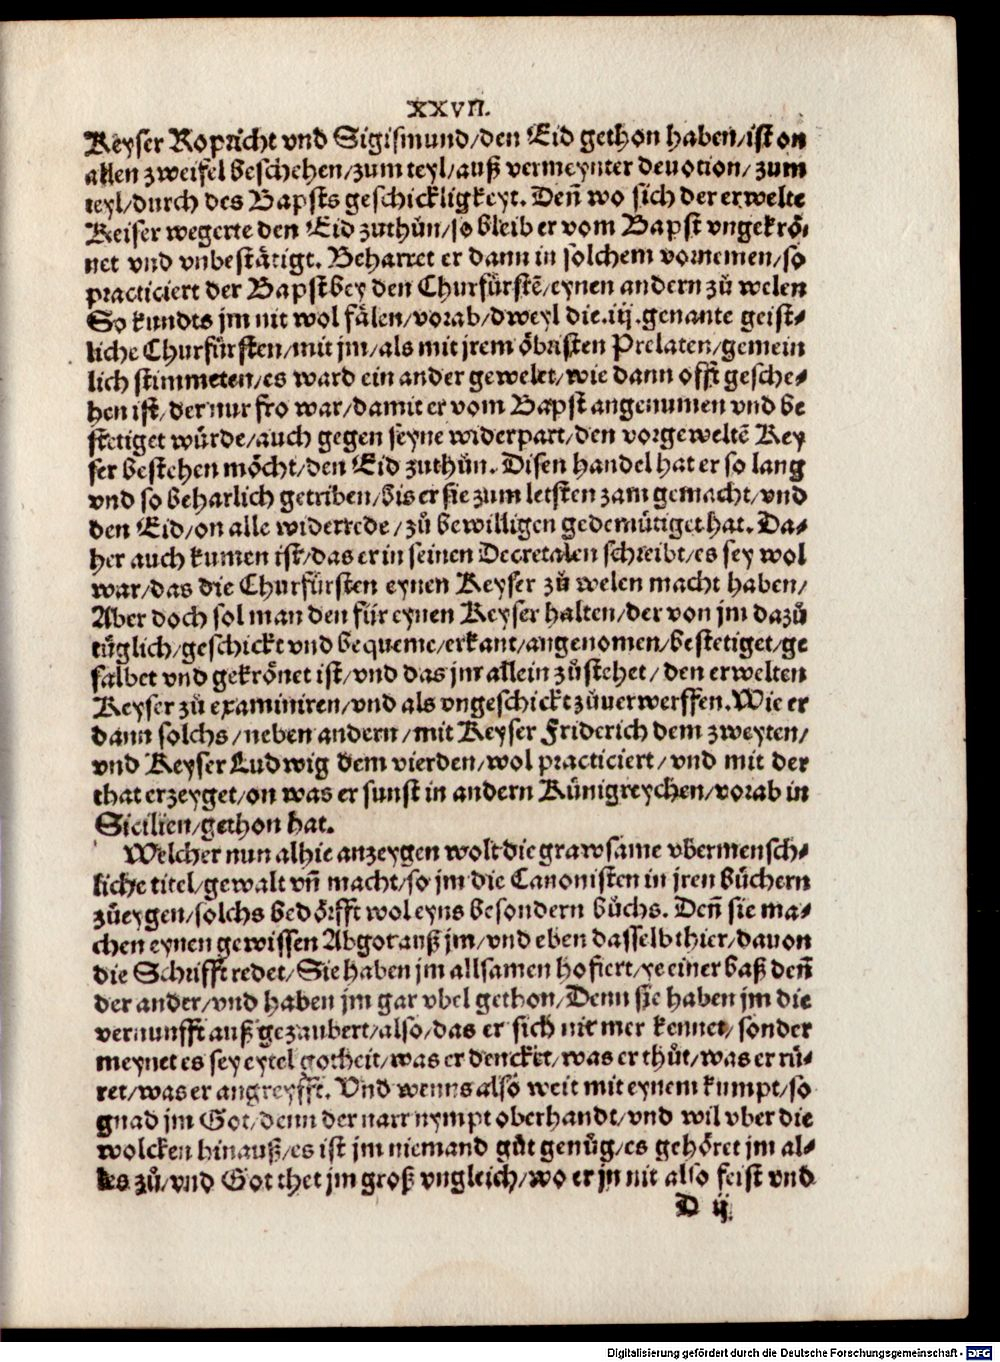 XXVII.
Keyser Ropricht vnd Sigismund/den Eid gethon haben/ist on
allen zweifel beschehen/zum teyl/auß vermeynter deuotion/zum
teyl/durch des Bapsts geschickligkeyt. Deñ wo sich der erwelte
Keiser wegerte den Eid zuthůn/so bleib er vom Bapst vngekrö⸗
net vnd vnbestätigt. Beharret er dann in solchem vornemen/so
practiciert der Bapst bey den Churfürstẽ/eynen andern zů welen
So kundts jm nit wol fälen/vorab/dweyl die .iij. genante geist⸗
liche Churfürsten/mit jm/als mit jrem öbristen Prelaten/gemein
lich stimmeten/es ward ein ander gewelet/wie dann offt gesche⸗
hen ist/der nur fro war/damit er vom Bapst angenumen vnd be
stetiget würde/auch gegen seyne widerpart/den vorgeweltẽ Key
ser bestehen möcht/den Eid zuthůn. Disen handel hat er so lang
vnd so beharlich getriben/bis er sie zum letsten zam gemacht/vnd
den Eid/on alle widerrede/zů bewilligen gedemütiget hat. Da⸗
her auch kumen ist/das er in seinen Decretalen schreibt/es sey wol
war/das die Churfürsten eynen Keyser zů welen macht haben/
Aber doch sol man den für eynen Keyser halten/der von jm dazů
tüglich/geschickt vnd bequeme/erkant/angenomen/bestetiget/ge
salbet vnd gekrönet ist/vnd das jm allein zůstehet/den erwelten
Keyser zů examiniren/vnd als vngeschickt zůuerwerffen. Wie er
dann solchs/neben andern/mit Keyser Friderich dem zweyten/
vnd Keyser Ludwig dem vierden/wol practiciert/vnd mit der
that erzeyget/on was er sunst in andern Künigreychen/vorab in
Sicilien/gethon hat.
Welcher nun alhie anzeygen wolt die grawsame vbermensch⸗
liche titel/gewalt vñ macht/so jm die Canonisten in jren büchern
zůeygen/solchs bedörfft wol eyns besondern bůchs. Deñ sie ma⸗
chen eynen gewissen Abgot auß jm/vnd eben dasselb thier/dauon
die Schrifft redet/Sie haben jm allsamen hofiert/ye einer baß deñ
der ander/vnd haben jm gar vbel gethon/Denn sie haben jm die
vernunfft auß gezaubert/also/das er sich nit mer kennet/sonder
meynet es sey eytel gotheit/was er dencket/was er thůt/was er rü⸗
ret/was er angreyfft. Vnd wenns also weit mit eynem kumpt/so
gnad jm Got/denn der narr nympt oberhandt/vnd wil vber die
wolcken hinauß/es ist jm niemand gůt genůg/es gehöret jm al⸗
les zů/vnd Got thet jm groß vngleich/wo er jn nit also feist vnd
D ij
Digitalisierung gefördert durch die Deutsche Forschungsgemeinschaft - DFG